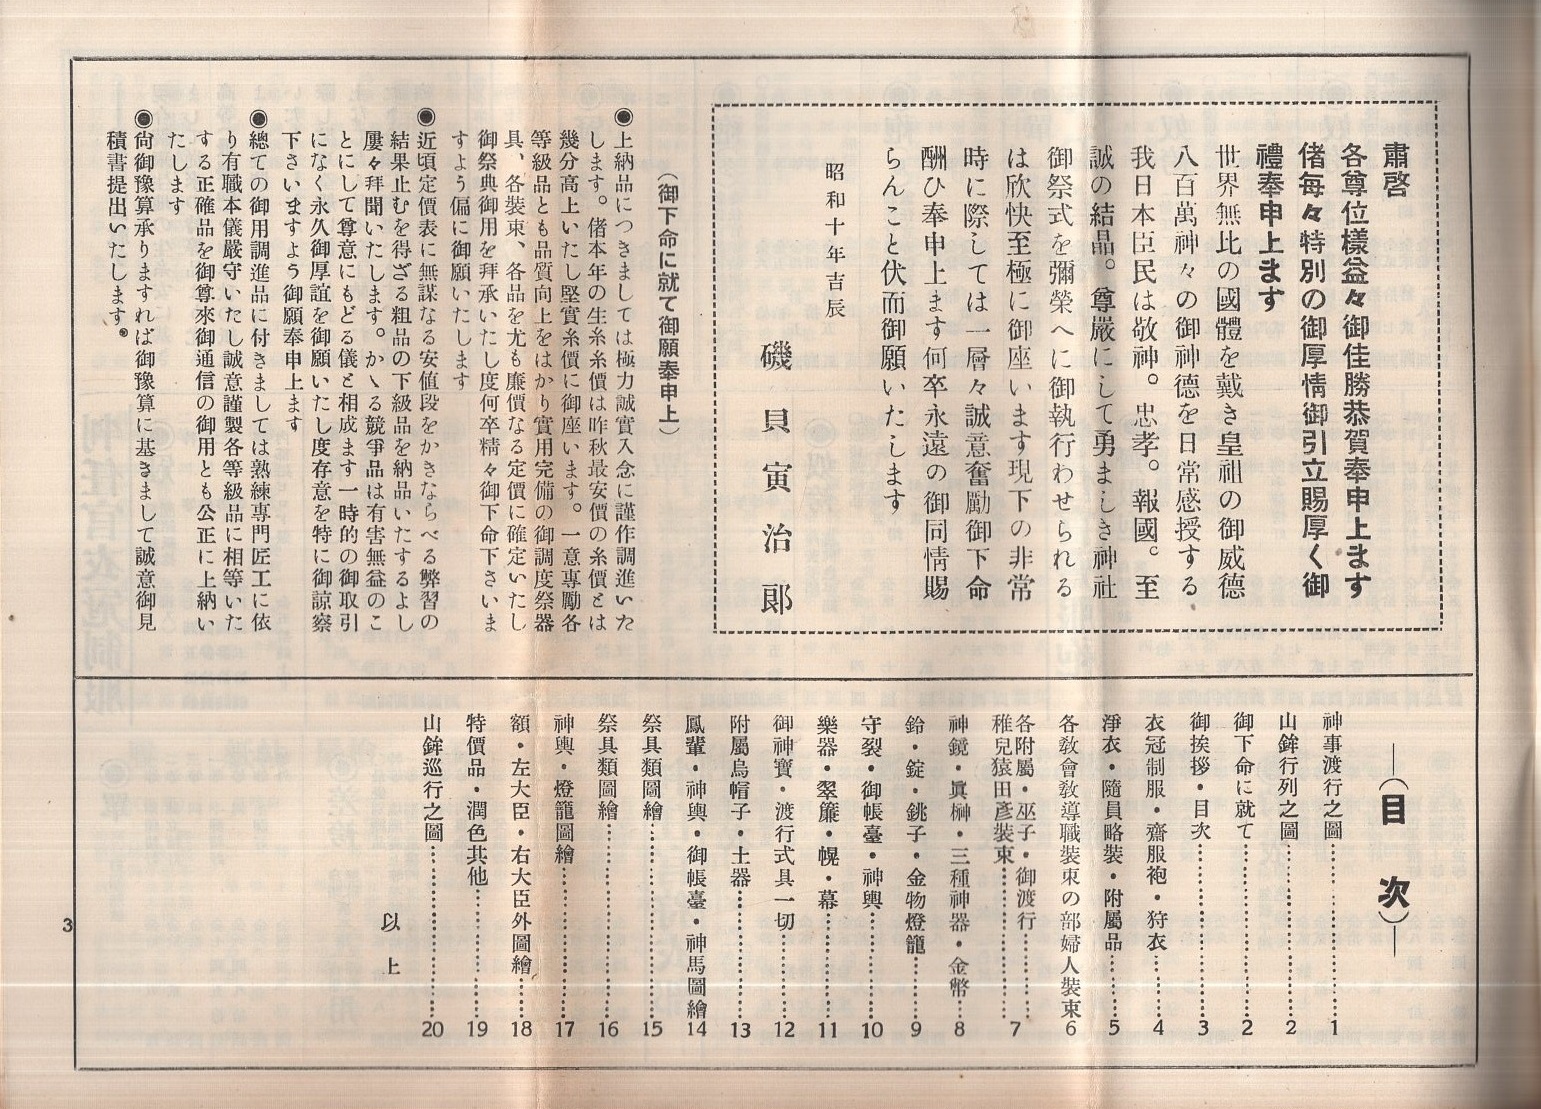 肅啓
各尊位樣益々御佳勝恭賀奉申上ます
偖每々特別の御厚情御引立賜厚く御
禮奉申上ます
世界無比の國體を戴き皇祖の御威德
八百萬神々の御神德を日常感授する
我日本臣民は敬神。忠孝。報國。至
誠の結晶。尊嚴にして勇ましき神社
御祭式を彌榮へに御執行わせられる
は欣快至極に御座います現下の非常
時に際しては一層々誠意奮勵御下命
酬ひ奉申上ます何卒永遠の御同情賜
らんこと伏而御願いたします
昭和十年吉辰
磯貝寅治郞
(御下命に就て御願奉申上)
◉上納品につきましては極力誠實入念に謹作調進いた
します。偖本年の生糸糸價は昨秋最安價の糸價とは
幾分高上いたし堅實糸價に御座います。一意專勵各
等級品とも品質向上をはかり實用完備の御調度祭器
具、各裝束、各品を尤も廉價なる定價に確定いたし
御祭典御用を拜承いたし度何卒精々御下命下さいま
すよう偏に御願いたします
◉近頃定價表に無謀なる安値段をかきならべる弊習の
結果止むを得ざる粗品の下級品を納品いたするよし
屢々拜聞いたします。かゝる競爭品は有害無益のこ
とにして尊意にもどる儀と相成ます一時的の御取引
になく永久御厚誼を御願いたし度存意を特に御諒察
下さいますよう御願奉申上ます
◉總ての御用調進品に付きましては熟練專門匠工に依
り有職本儀嚴守いたし誠意謹製各等級品に相等いた
する正確品を御尊來御通信の御用とも公正に上納い
たします
◉尙御豫算承りますれば御豫算に基きまして誠意御見
積書提出いたします。
―(目次)―
神事渡行之圖………1
山鉾行列之圖………2
御下命に就て………2
御挨拶・目次………3
衣冠制服・齋服袍・狩衣………4
淨衣・隨員略裝・附屬品………5
各敎會敎導職裝束の部婦人裝束 6
各附屬・巫子・御渡行………
稚兒猿田彥裝束………7
神鏡・眞榊・三種神器・金幣………8
鈴・錠・銚子・金物燈籠………9
守裂・御帳臺・神輿………10
樂器・翠簾・幌・幕………11
御神寶・渡行式具一切………12
附屬烏帽子・土器………13
鳳輦・神輿・御帳臺・神馬圖繪 14
祭具類圖繪………15
祭具類圖繪………16
神輿・燈籠圖繪………17
額・左大臣・右大臣外圖繪………18
特價品・潤色其他………19
山鉾巡行之圖………20
以上
3